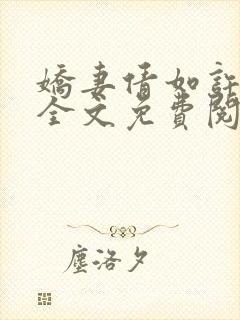 嬌妻情如
全文免費閱
塵洛夕